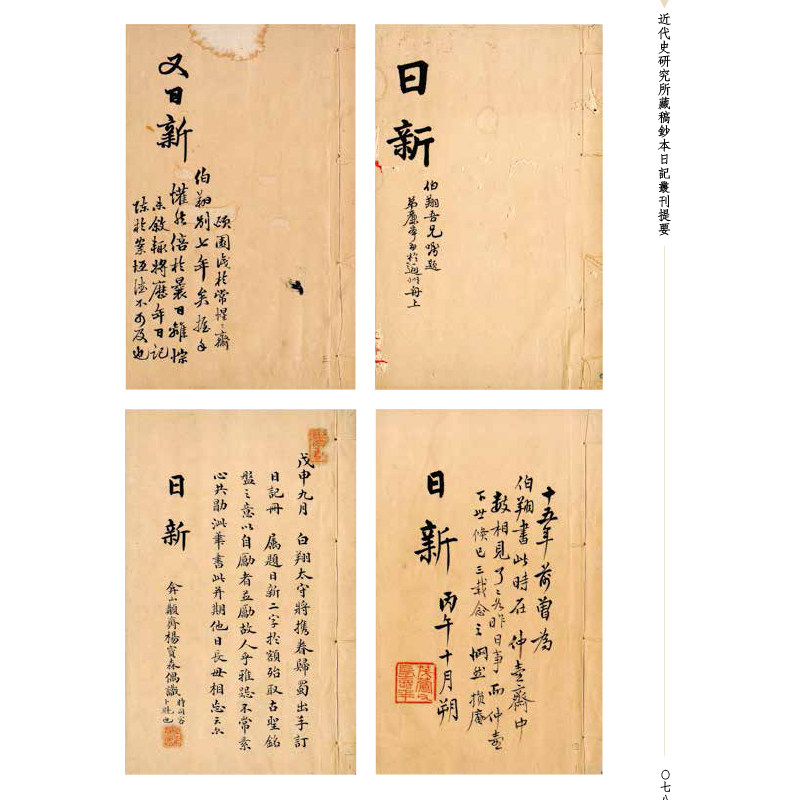 近代史研究所藏稿鈔本日記叢刊提要
日新
伯翔吾兄囑題
又日新
頑圃識於常惺〻齋
伯翔別七年矣握手
懽然倍於曩日離悰
未敘輒將歷年日記
陳於案恒德不可及也
十五年前曾為
伯翔書此時在仲壺齋中
數相見了〻如昨日事而仲壺
下世倏已三載念之惘然損庵
日新
丙午十月朔
戊申九月 白翔太守將攜眷歸蜀出手訂
日記冊 屬題日新二字於額殆取古聖銘
盤之意以自勵者並勵故人乎雅誼不常素
心共勖泚筆書此并期他日長毋相忘云爾
日新
弇山觀齋楊寶森偶識
〇七八